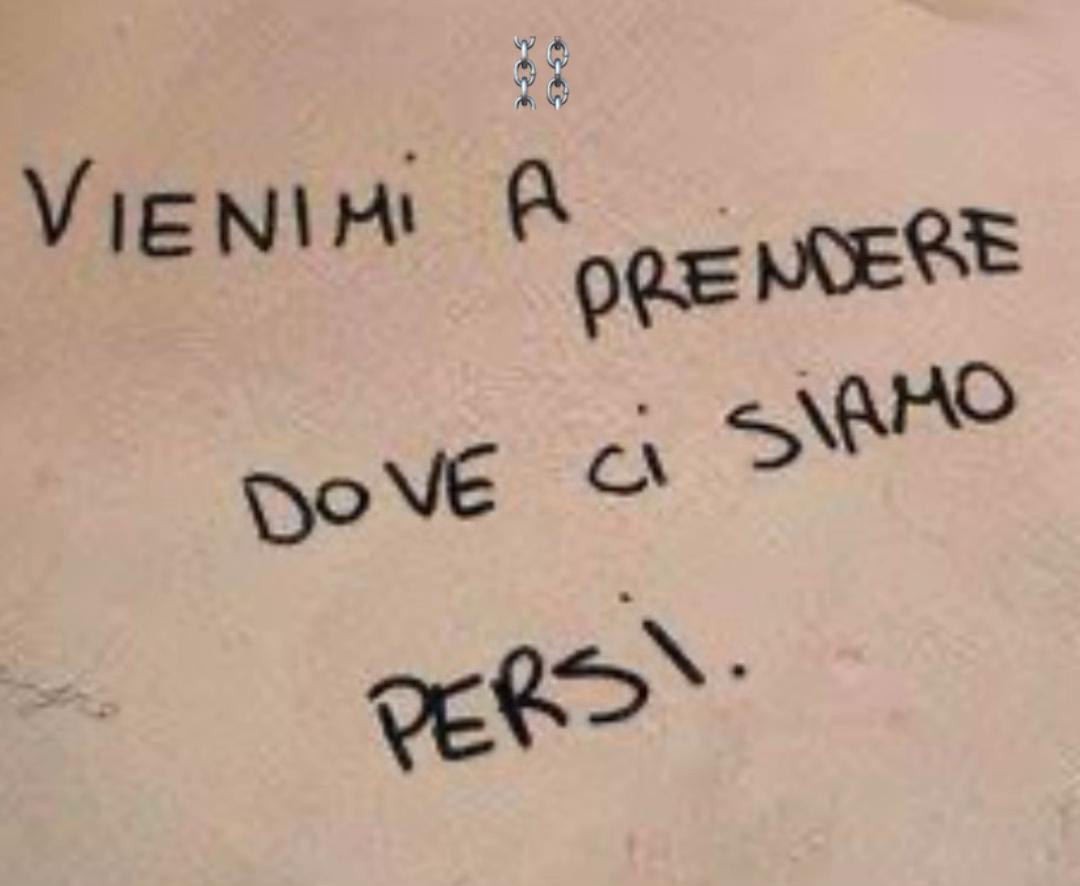 VIENIMI A
PRENDERE
DOVE CI SIAMO
PERSI.